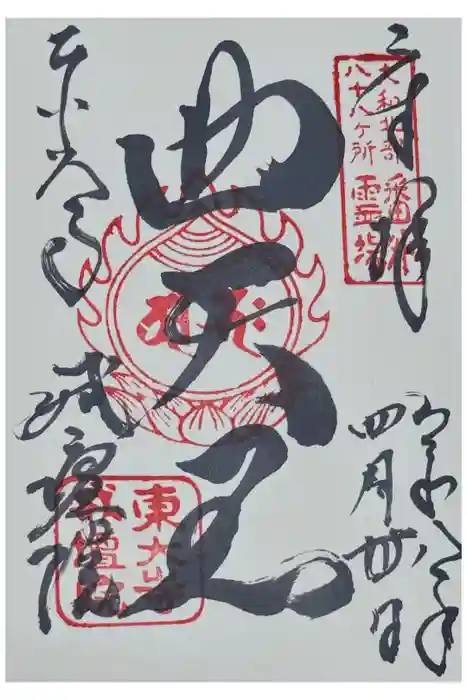 奉拝
大和北部
八十八ヶ所
霊場
四天王
令和
四月
日
東大寺
戒壇院
東大寺
戒壇院